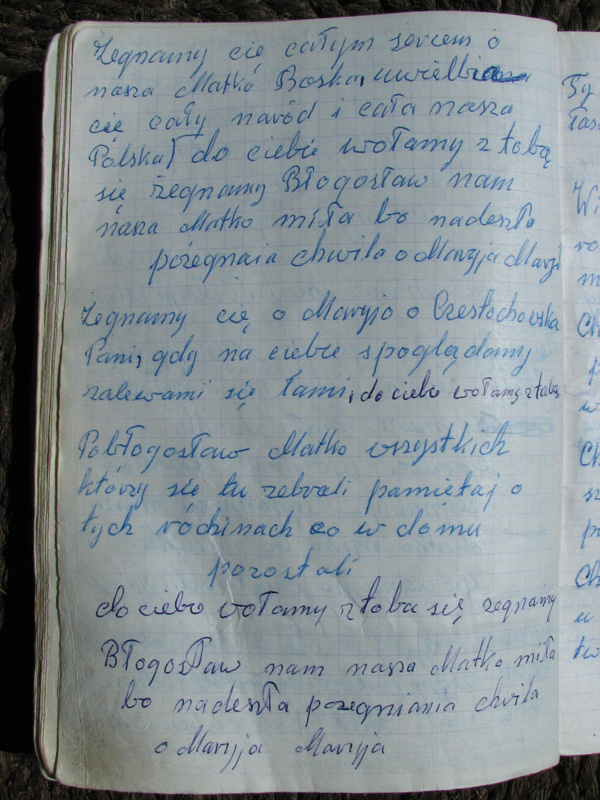 Żegnamy cię całym sercem o
nasza Matko Boska, uwielbia
cię cały naród i cała nasza
Polska] do ciebie wołamy z tobą
się żegnamy Błogosław nam
nasza Matko miła bo nadeszła
pożegnaia chwila o Maryja Maryj
Żegnamy cię o Maryjo o Częstochowska
Pani, gdy na ciebie spoglądamy
zalewami się łami, do ciebo wołamy z tobą
Pobłogosław Matko wszystkich
którzy się tu zebrali pamiętaj o
tych rodzinach co w domu
pozostali
do ciebo wołamy z toba się żegnamy
Błogosław nam nasza Matko miła
bo nadeszła pozegniania chwila
o Maryja Maryja
Ty
łas
Wi
ro
m
Ch
p
w
Ch
sz
po
Ch
u
tw